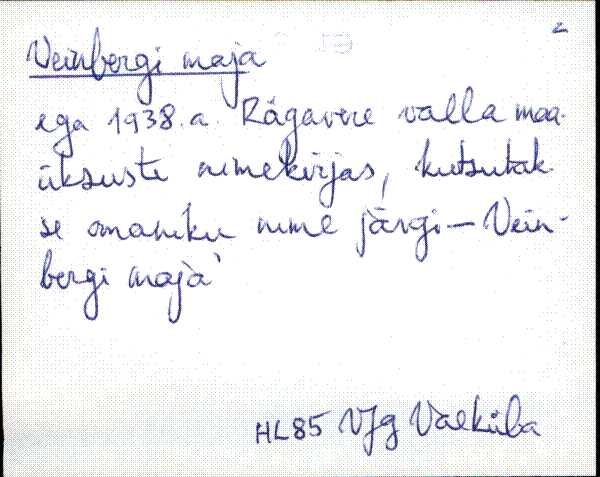 2
Veinbergi maja
ega 1938.a. Rägavere valla maa-
üksuste nimekirjas, kutsutak-
se omaniku nime järgi – Vein-
bergi maja'
HL85 VJg Vaeküla